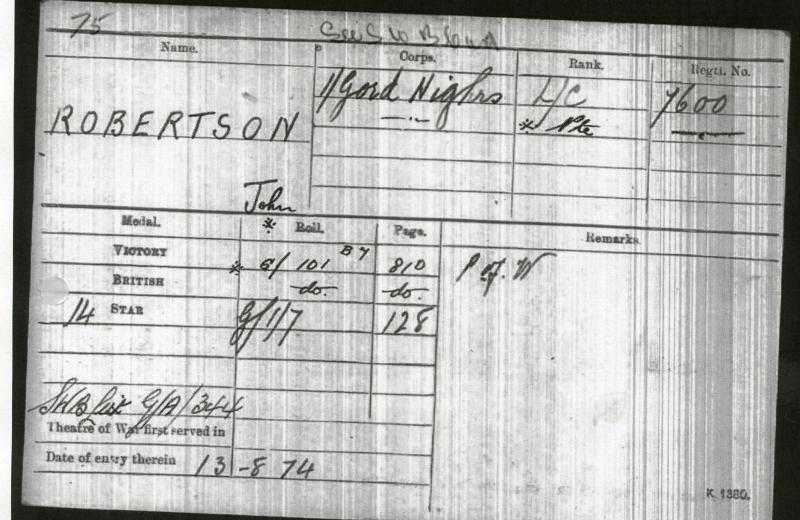 75
See SWB
Name. Corps. Rank. Regtl. No.
ROBERTSON 1/Gord Highrs L/C 7600
—"— * Pte —"—
John
Medal. * Roll. Page. Remarks.
VICTORY * G/ 101 B 7 810 P of. W
BRITISH do. do.
14 STAR G/1/7 128
SWB list G/A/344
Theatre of War first served in
Date of entry therein 13-8 14
K. 1380.